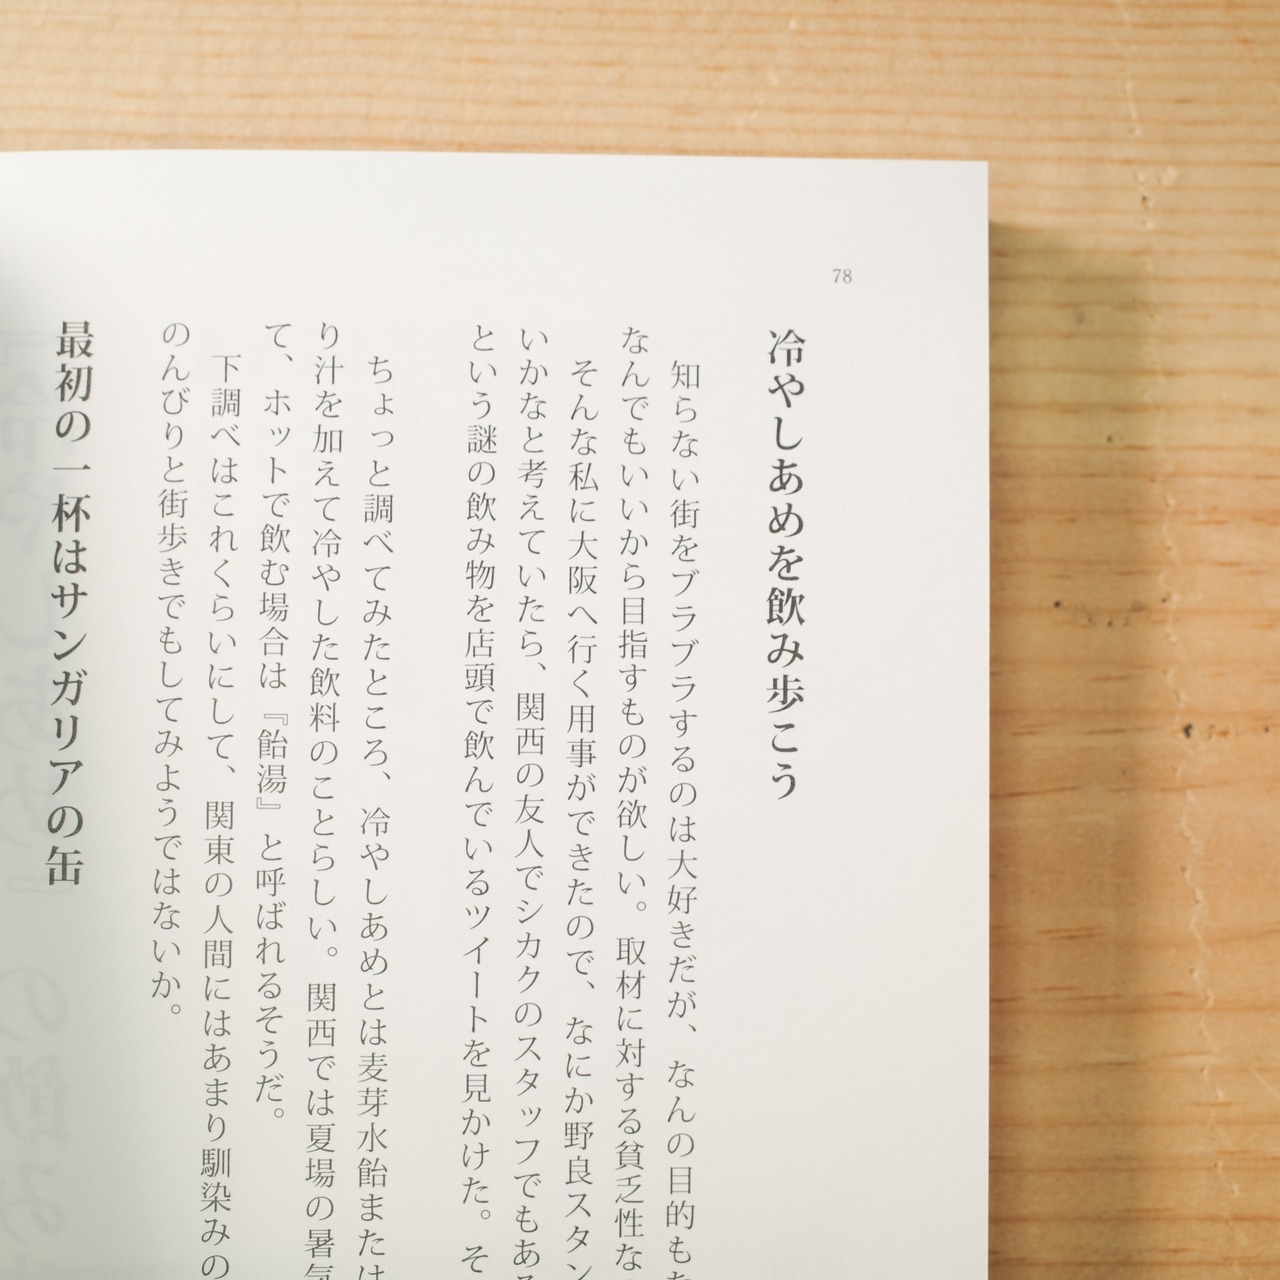 78
冷やしあめを飲み歩こう
知らない街をブラブラするのは大好きだが、なんの目的もな
なんでもいいから目指すものが欲しい。取材に対する貧乏性な
そんな私に大阪へ行く用事ができたので、なにか野良スタン
いかなと考えていたら、関西の友人でシカクのスタッフでもある
という謎の飲み物を店頭で飲んでいるツイートを見かけた。そ
ちょっと調べてみたところ、冷やしあめとは麦芽水飴または
り汁を加えて冷やした飲料のことらしい。関西では夏場の暑気
て、ホットで飲む場合は『飴湯』と呼ばれるそうだ。
下調べはこれくらいにして、関東の人間にはあまり馴染みの
のんびりと街歩きでもしてみようではないか。
最初の一杯はサンガリアの缶